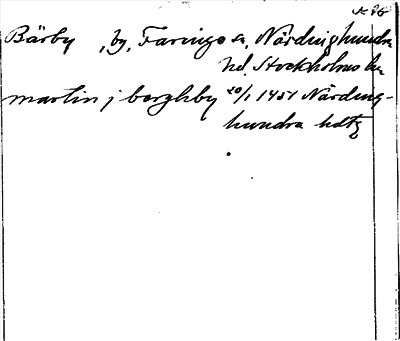 Bärby , by, Faringe sn, Närdinghundra
hd, Stockholms län
martin j berghby 20/1 1451 Närding-
hundra hdtg